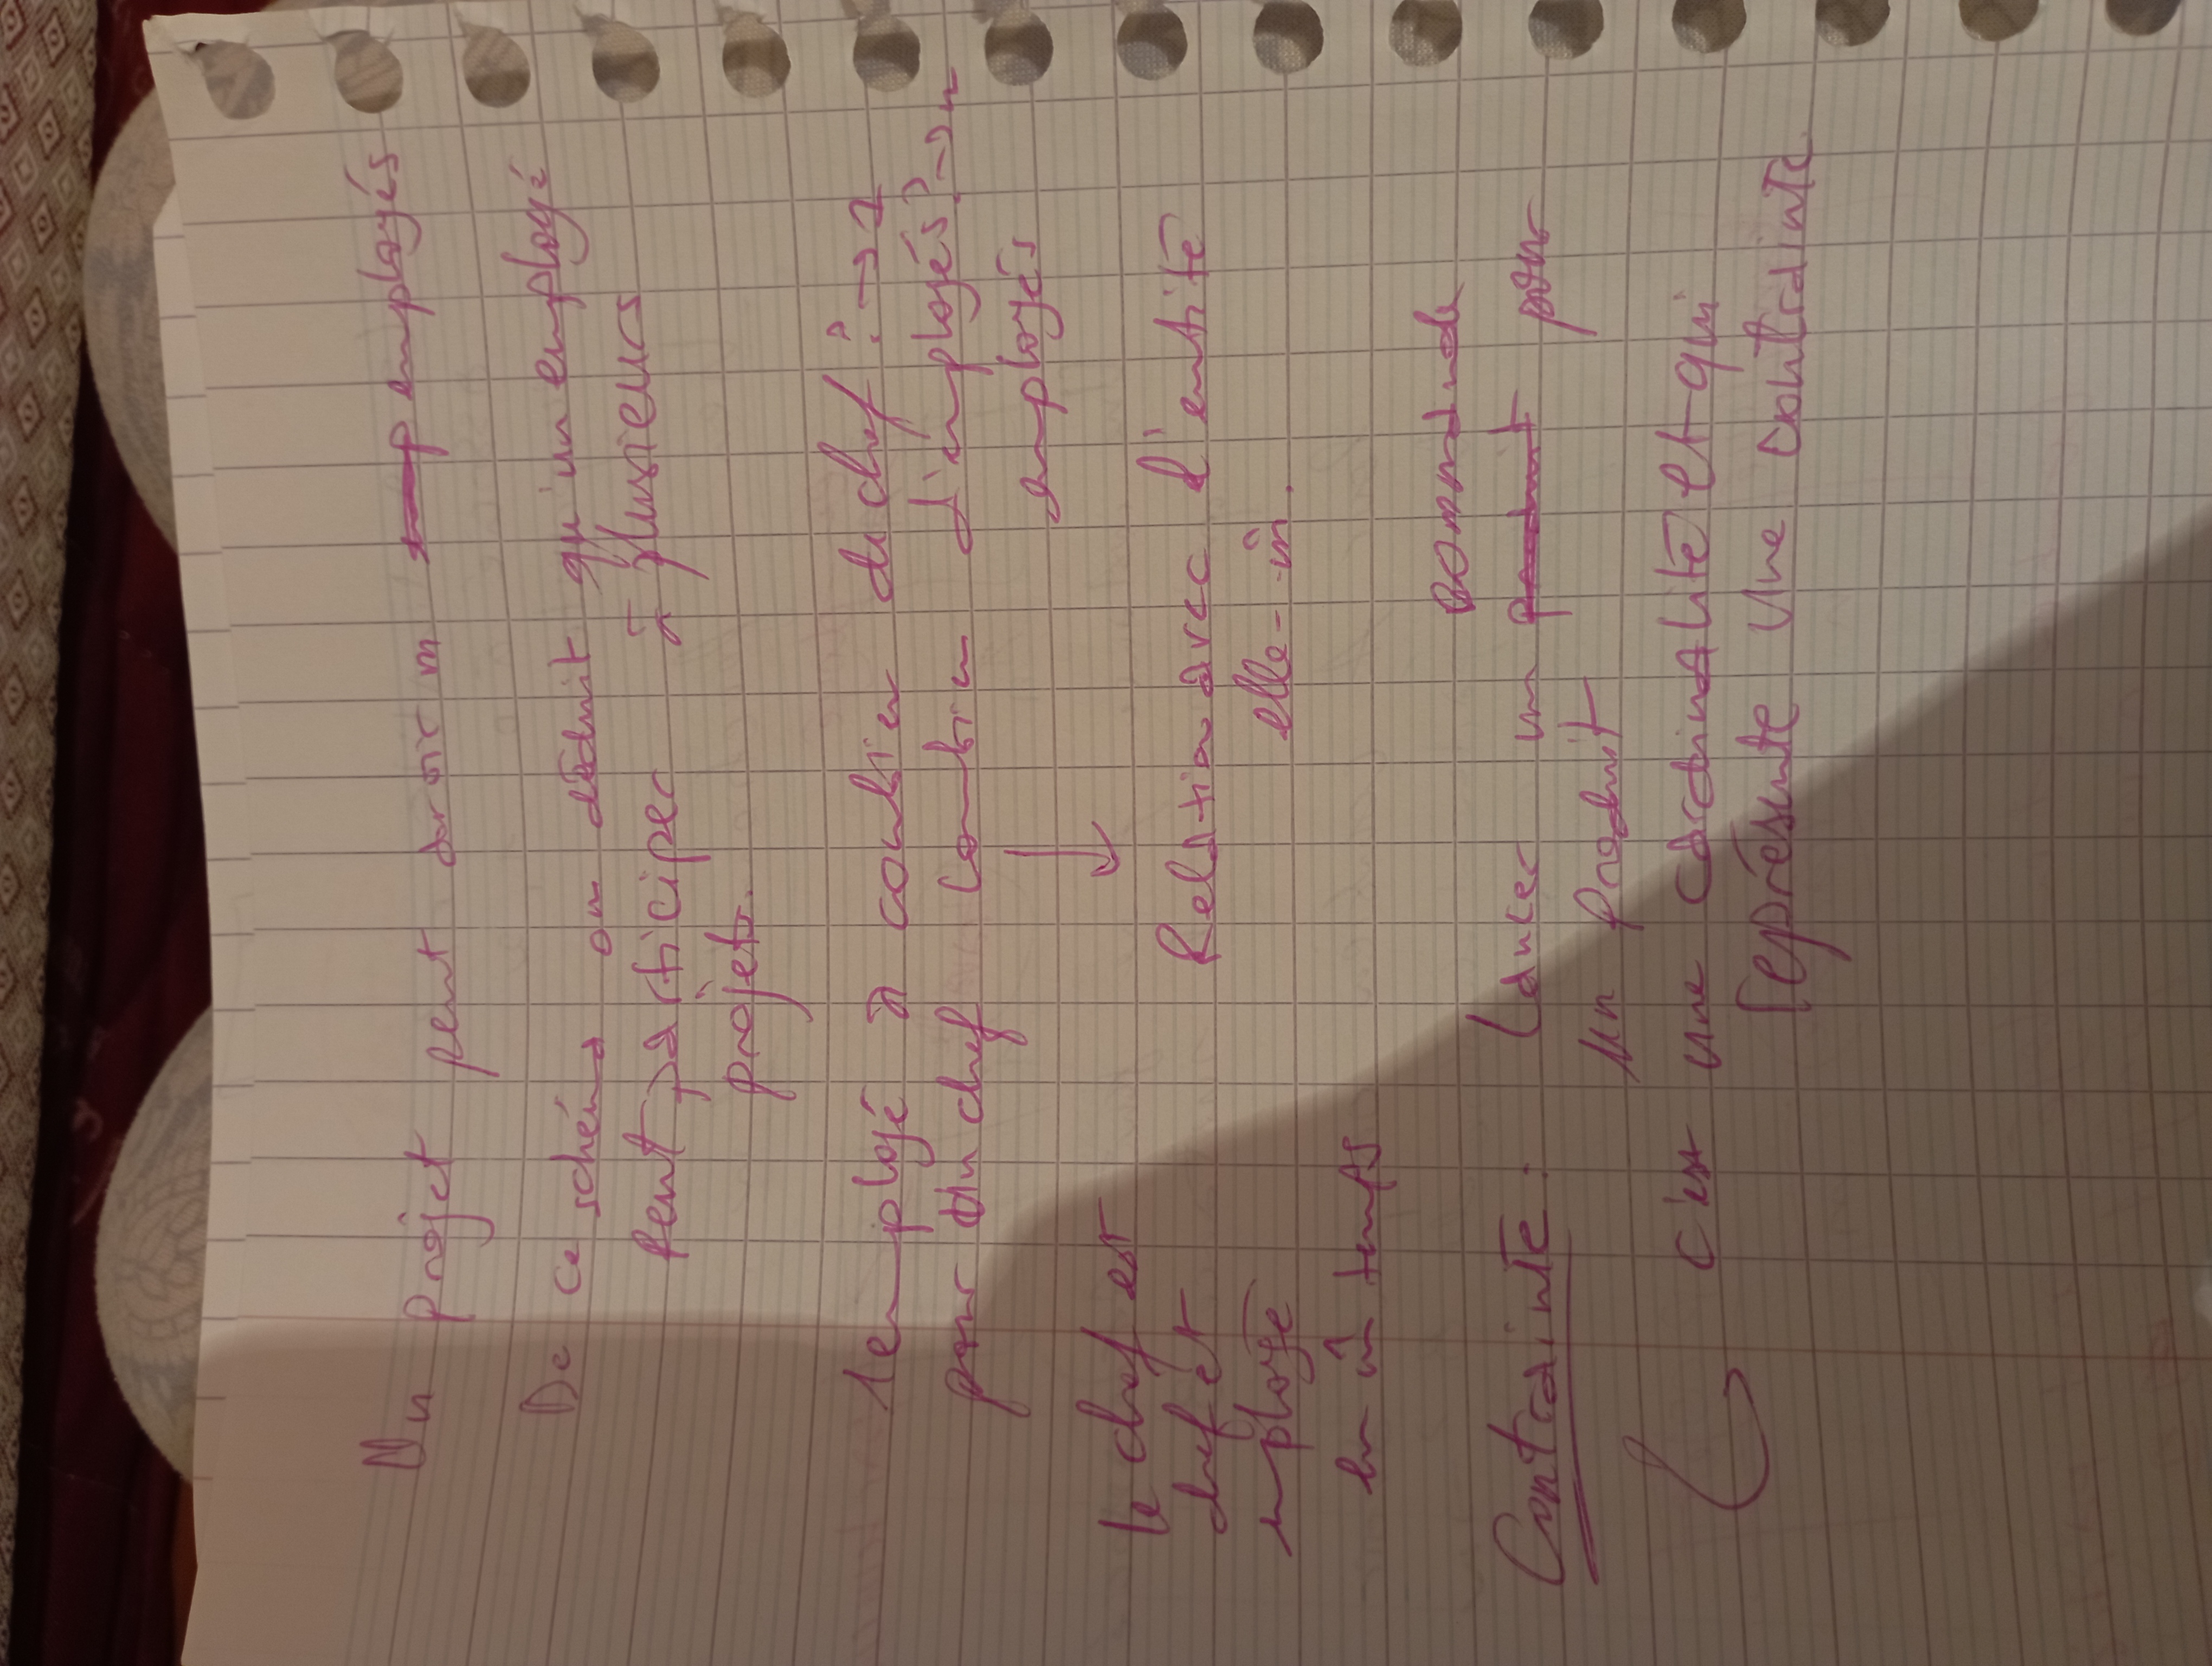 Un projet peut avoir m employés
De ce schéma on déduit qu'un employé
peut participer à plusieurs
projets.
1 employé à combien de chef ? → 1
pour Un chef combien d'employés ? → n
employés
le chef est
chef et
employé
en m̂ temps
Relation avec l'entité
elle-m̂.
commande
Contrainte : Lancer un produit pour
un Produit
c'est une cardinalité et qui
représente une contrainte